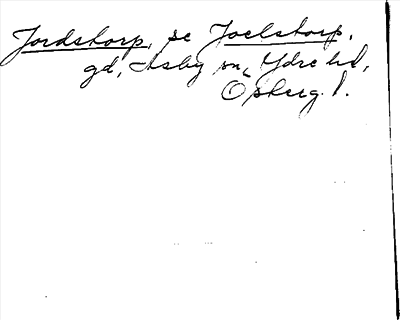 Jordstorp, se Joelstorp,
gd, Asby sn, Ydre hd,
Österg. l.